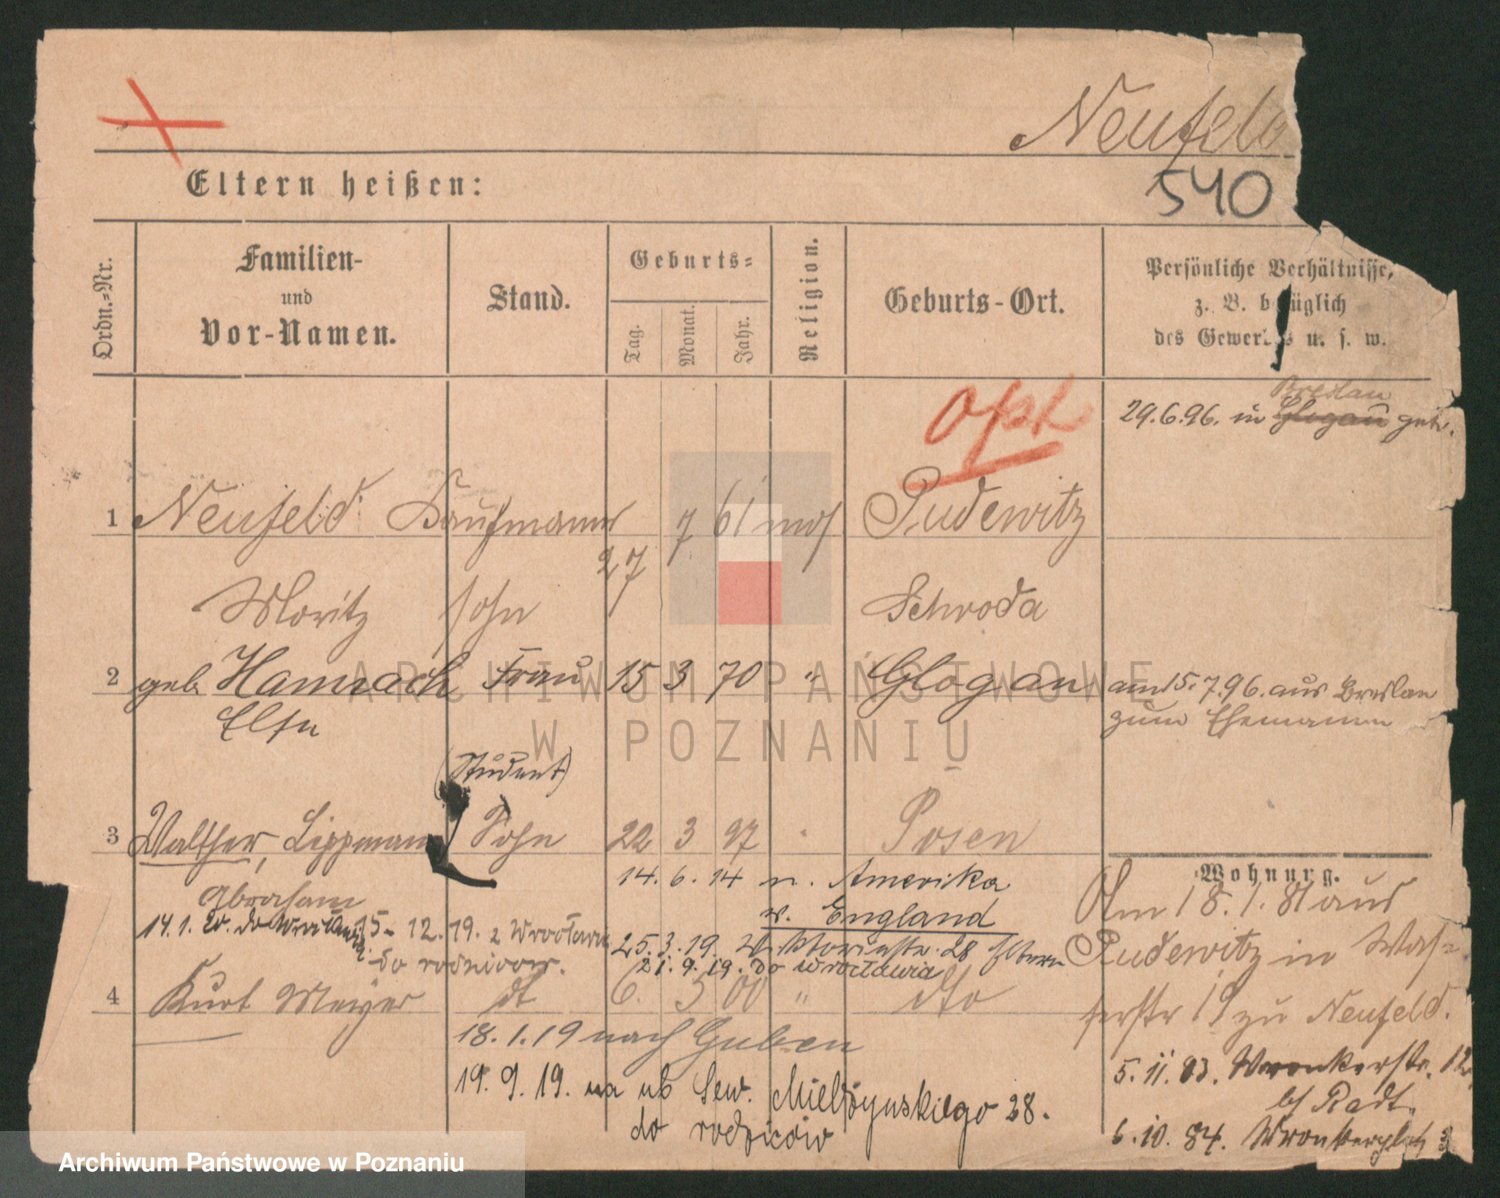 Neufeld
540
Eltern heißen:
Ordn.-Nr.
Familien-
und
Vor-Namen.
Stand.
Geburts-
Tag.
Monat.
Jahr.
Religion.
Geburts-Ort.
Persönliche Verhältnisse,
z. B. bezüglich
des Gewerbes u. s. w.
Opt
Breslau
29.6.96. in Glogau getr.
1 Neufeld Kaufmanns 7 61 mos Pudewitz
27
Moritz sohn Schroda
2 geb. Hamrach Frau 15 3 70 " Glogau am 15.7.96. aus Breslau
Else zum Ehemann
(Student)
3 Walther, Lippmann Sohn 22 3 97 " Posen
Wohnung.
Abraham
14. 6. 14 n. Amerika
v. England
14.1.20. do Wrocławia 15-12.19. z Wrocławia
do rodziców.
25.3.19. Eltern
21.9.19. do Wrocławia
4 Kurt Meyer dt 6. 3 00 " dto
18.1.19 nach Guben
19.9.19. na ub Sew. Mielżyńskiego 28.
do rodziców
Am 18.1.81 aus
Pudewitz in Was-
serstr 19 zu Neufeld.
5.11.83. Wronkerstr. 12
b/ Radt.
6.10.84. Wronkerplatz 3
ARCHIWUM PAŃSTWOWE
W POZNANIU
Archiwum Państwowe w Poznaniu